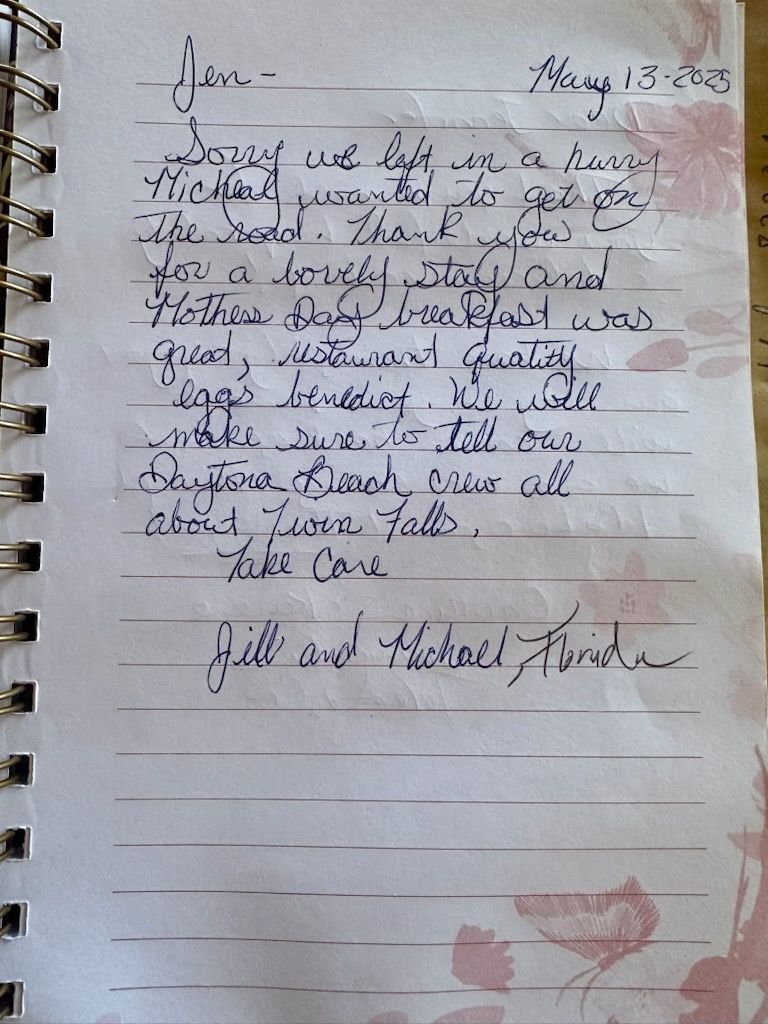 Jen - May 13-2025
Sorry we left in a hurry
Micheal wanted to get on
the road. Thank you
for a lovely stay and
Mothers Day breakfast was
great, restaurant quality
eggs benedict. We will
make sure to tell our
Daytona Beach crew all
about Twin Falls.
Take Care
Jill and Michael, Florida